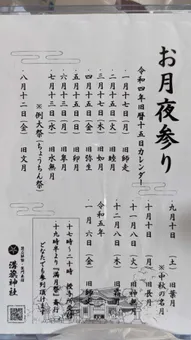 お月夜参り
令和四年旧暦十五日カレンダー
一月十七日（月）旧師走
二月十五日（火）旧睦月
三月十七日（木）旧如月
四月十五日（金）旧弥生
五月十五日（日）旧卯月
六月十三日（月）旧皐月
七月十三日（水）旧水無月
※例大祭（ちょうちん祭）
八月十二日（金）旧文月
九月十日（土）旧葉月
※中秋の名月
十月十日（月）旧長月
十一月八日（火）旧神無月
十二月八日（木）
令和五年
一月六日（金）旧師走
十七時〜二十時
十九時半より「満月祭」斎行
どなたでも参列頂けます
溝旗神社